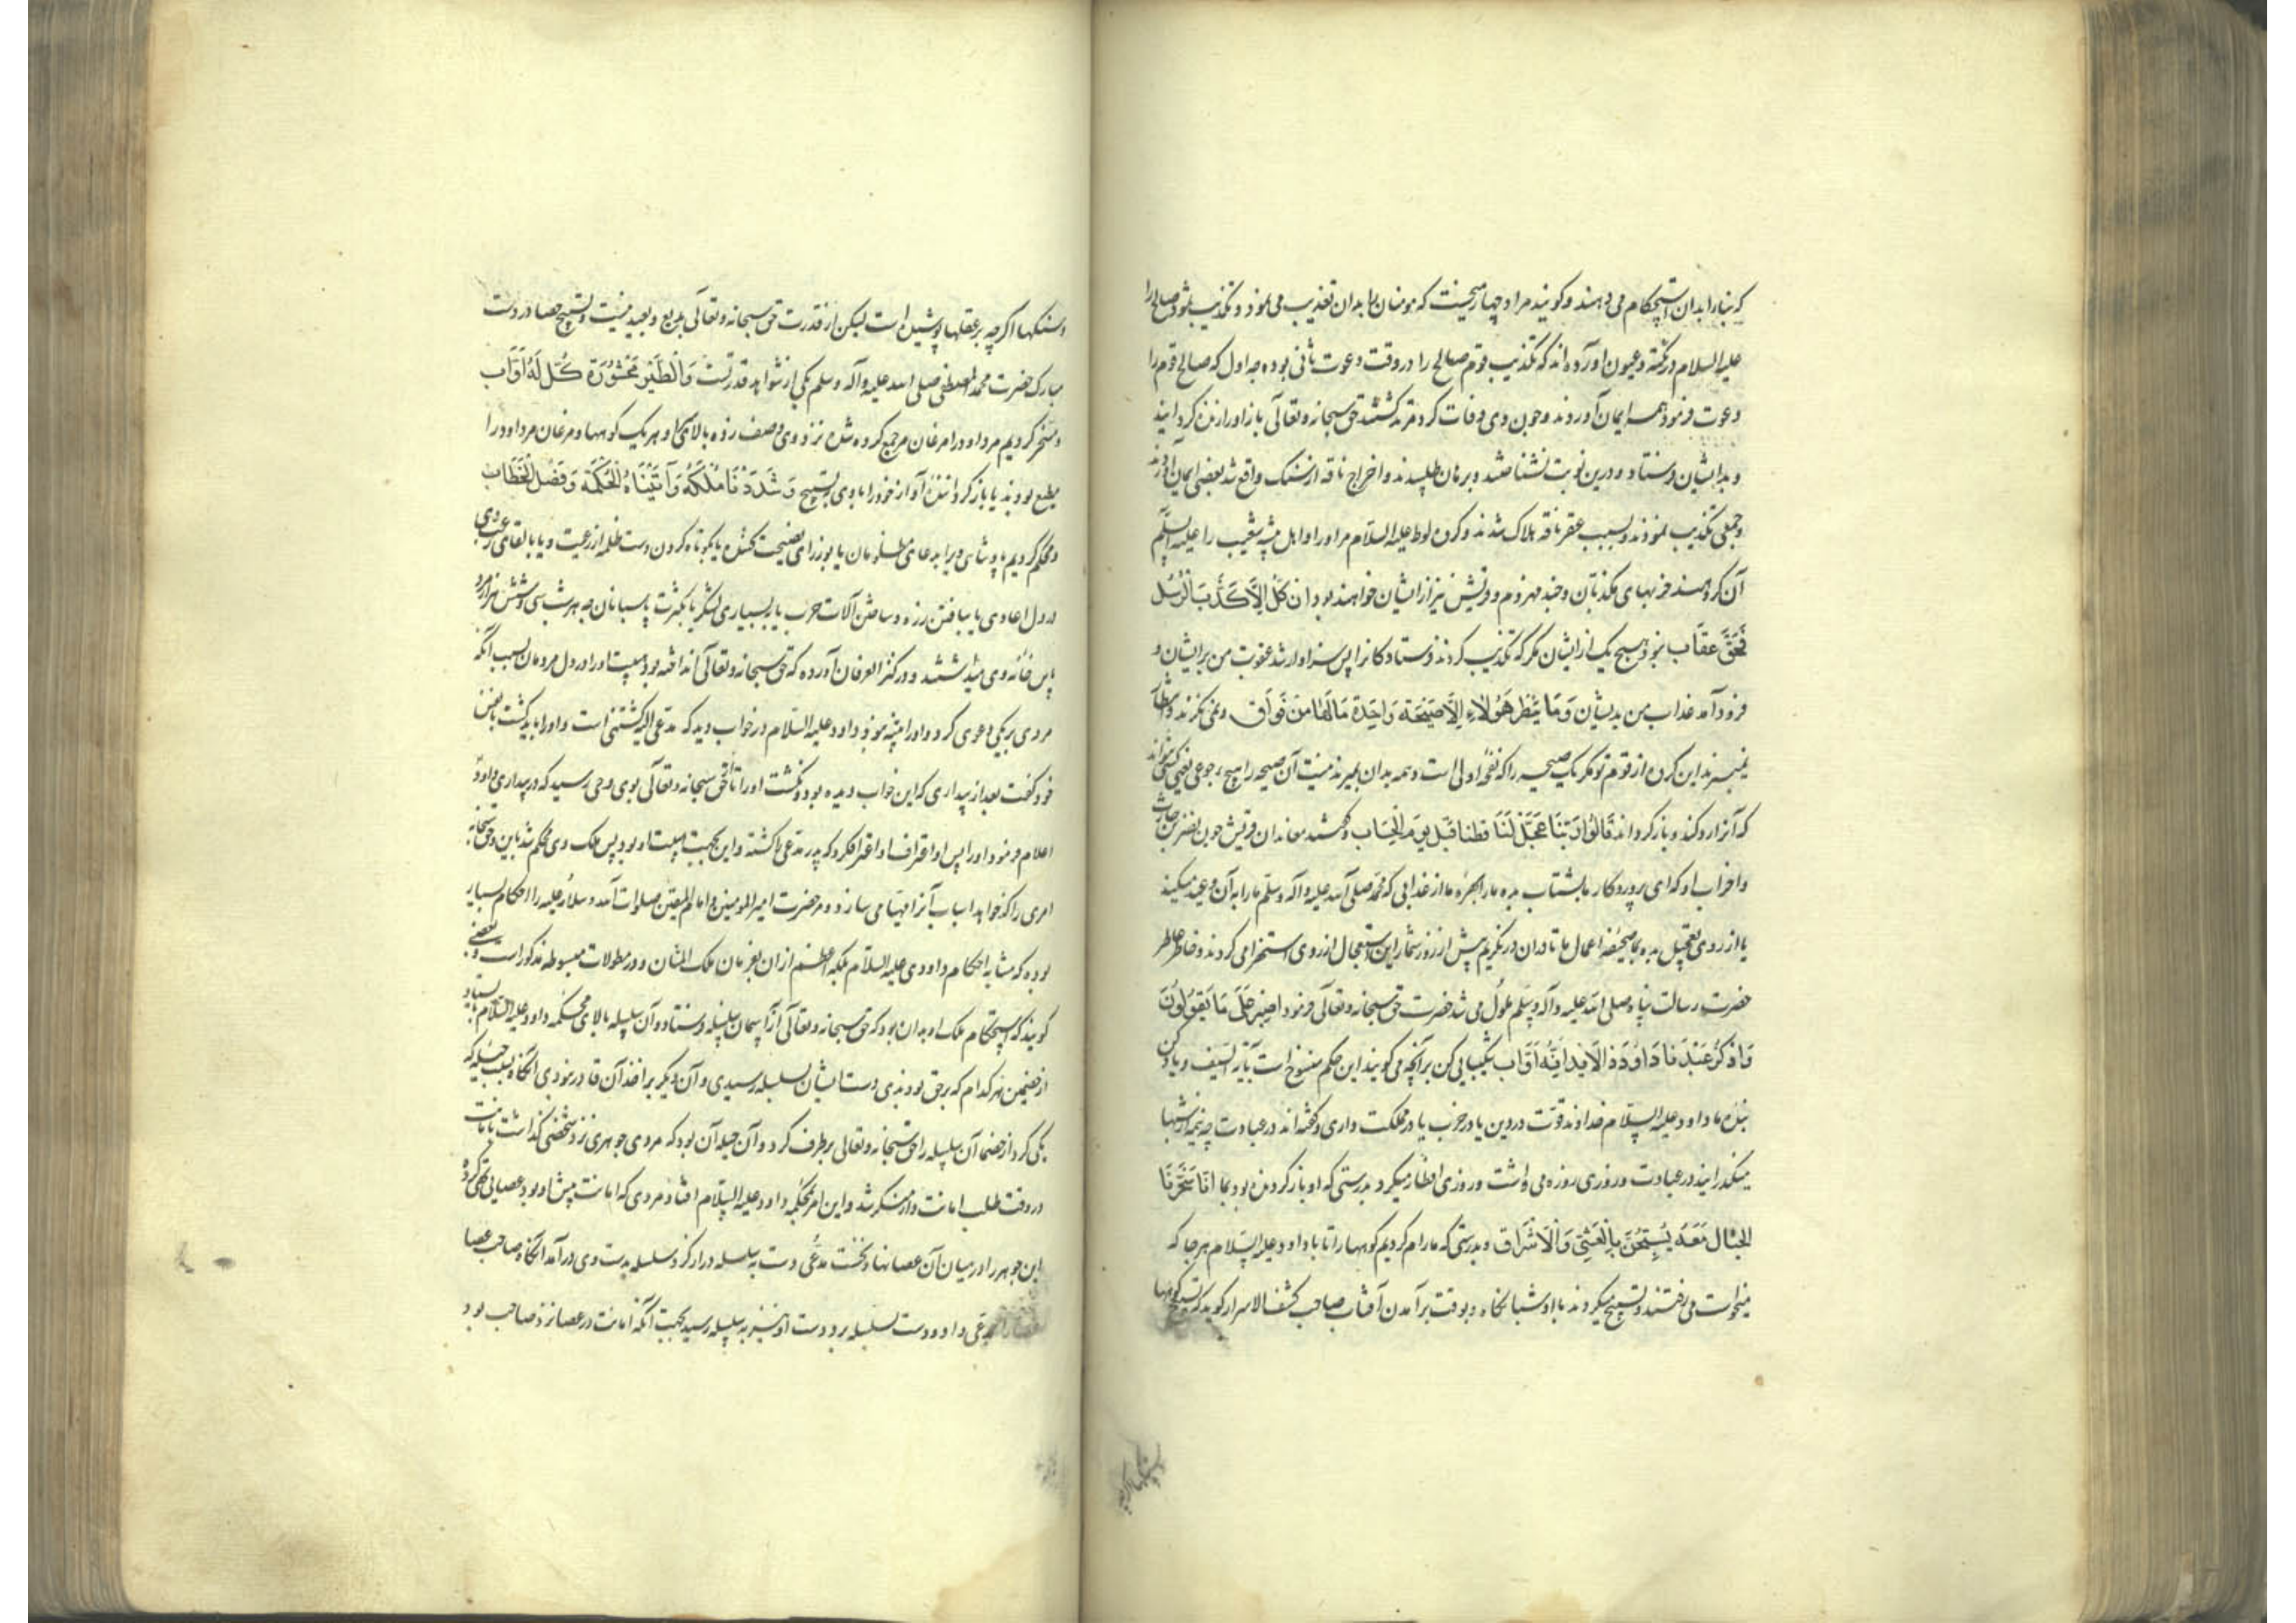 که بنا را بدان استحکام می دهند و کویند مراد چهار میخست که مومنان را بدان تعذیب می نمود و تکذیب ثمود صالح را
علیه السلام در نکته و عیون آورده اند که تکذیب قوم صالح را در وقت دعوت ثانی بوده چه اول که صالح قوم را
دعوت فرمود همه ایمان آوردند و چون وی وفات کرد مرتد کشتند حق سبحانه و تعالی باز او را زنده کردانید
و بدایشان فرستاد و درین نوبت نشناختند و برهان طلبیدند و اخراج ناقه از سنک واقع شد بعضی ایمان آوردند
و جمعی تکذیب نمودند و بسبب عقر ناقه هلاک شدند و کروه لوط علیه السلام مر او را و اهل بیشه شعیب را علیه السلم
آن کروهند حزبهای مکذبان و جند مهزوم و قریش نیز از ایشان خواهند بود ان کل الا کذب الرسل
فحق عقاب نبود هیچ یک از ایشان مکر که تکذیب کردند فرستادکانرا پس سزاوار شد عقوبت من بر ایشان و
فرود آمد عذاب من بدیشان وَمَا يَنظُرُ هَؤُلاءِ إِلاّ صَيحَةً وَاحِدَةً مَا لَهَا مِن فَوَاقٍ و نمی نکرند و انتظار
نمیبرند این کروه از قوم تو مکر یک صیحه را که نفخه اولی است و همه بدان بمیرند نیست آن صیحه را هیچ رجوعی یعنی کسی نتواند
که آنرا رد کند و باز کرداند قَالُوا رَبَّنَا عَجِّل لَنَا قطنا قَبلَ يَومِ الحِسَاب و کفتند معاندان قریش چون نضر بن حارث
و احزاب او که ای پروردکار ما بشتاب بده ما را بهره ما از عذابی که محمد صلی الله علیه و آله وسلم ما را به آن وعید میکند
یا از روی تعجیل بده بما صحیفه اعمال ما تا دران درنکریم پیش از روز شمار این استعجال از روی استهزا می کردند و خاطر عاطر
حضرت رسالت پناه صلی الله علیه و آله وسلم ملول می شد حضرت حق سبحانه و تعالی فرمود اصبِر عَلَى مَا يَقُولُونَ
وَاذكُر عَبدَنَا دَاوُدَ ذَا الاَيدِ اِنَّهُ اَوَّاب شکیبایی کن بر آنچه می کویند این حکم منسوخ است بآیه السیف و یاد کن
بنده ما داود علیه السلام خداوند قوت در دین یا در حرب یا در مملکت داری و کفته اند در عبادت چه نیمه از شبها
میکذرانید در عبادت و روزی روزه می داشت و روزی افطار میکرد بدرستی که او باز کردنده بود بما انّا سَخَّرنَا
الجِبَال مَعَهُ يُسَبِّحنَ بِالعَشِيِّ وَالاِشرَاق و بدرستی که ما رام کردیم کوهها را تا با داود علیه السلام هر جا که
میخواست می رفتند و تسبیح میکردند با او شبانکاه و بوقت برآمدن آفتاب صاحب کشف الاسرار کوید که تسبیح کوهها
وسنکها اکرچه بر عقلها پوشیده است لیکن از قدرت حق سبحانه و تعالی بدیع و بعید نیست و تسبیح حصا در دست
مبارک حضرت محمد المصطفی صلی الله علیه و آله وسلم یکی از شواهد قدرتست وَالطَّيرَ مَحشُورَةً كُلٌّ لَهُ اَوَّاب
و مسخر کردیم مر داود را مرغان مر جمع کرده شده نزد وی و صف زده بالای او هر یک کوهها و مرغان مر داود را
مطیع بودند یا باز کرداننده آواز خود را با وی بتسبیح وَشَدَدنَا مُلكَهُ وَآتَينَاهُ الحِكمَةَ وَفَصلَ الخِطَاب
و محکم کردیم پادشاهی ویرا بدعای مظلومان یا بوزرای نصیحت کننده یا بکوتاه کردن دست ظلمه از رعیت و یا بالقای رعب وی
در دل اعادی یا ببافتن زره و ساختن آلات حرب یا ببسیاری لشکر یا بکثرت پاسبانان چه هر شب سی و شش هزار مرد
پاس خانه وی میداشتند و در کنز العرفان آورده که حق سبحانه و تعالی انداخته بود هیبت او را در دل مردمان بسبب آنکه
مردی بر یکی دعوی کرد و او را بینه نبود داود علیه السلام در خواب دید که مدعی الیه کشتنی است و او را باید کشت با نفس
خود کفت بعد از بیداری که این خواب دیده بود و نکشت او را تا حق سبحانه و تعالی بوی وحی رسید که در بیداری داود
اعلام فرمود او را پس او اعتراف کرد که پدر مدعی را کشته و این بجهت هیبت او بود پس ملک وی محکم شد باین و حق سبحانه
امری را که خواهد اسباب آنرا مهیا می سازد و مر حضرت امیر المومنین و امام المتقین صلوات الله و سلامه علیه را احکام بسیار
بوده که مشابه احکام داودی علیه السلام بلکه اعظم از ان بفرمان ملک المنان و در مطولات مبسوطه مذکور است و بعضی
کویند که استحکام ملک او بدان بود که حق سبحانه و تعالی از آسمان سلسله فرستاد و آن سلسله بالای محکمه داود علیه السلام
از خصمین هر کدام که بر حق بودندی دست ایشان بسلسله رسیدی و آن دیکر بر اخذ آن قادر نبودی آنکاه بسبب حیله که
یکی کرد از خصما آن سلسله را حق سبحانه و تعالی بر طرف کرد و آن حیله آن بود که مردی جوهری نزد شخصی کذاشت بامانت
در وقت طلب امانت دار منکر شد و این امر بمحکمه داود علیه السلام افتاد مردی که امانت پیش او بود عصایی تهی کرده
این جوهر را در میان آن عصا نهاد نخست مدعی دست به سلسله دراز کرد سلسله بدست وی درآمد آنکاه صاحب عصا
مدعی داد و دست بسلسله برد دست او نیز به سلسله رسید بجهت آنکه امانت در عصا نزد صاحب بود